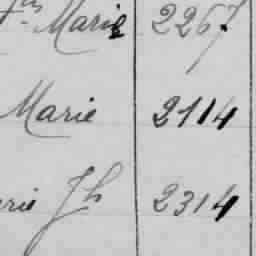 Marie 2267
Marie 2114
rie Jh 2314